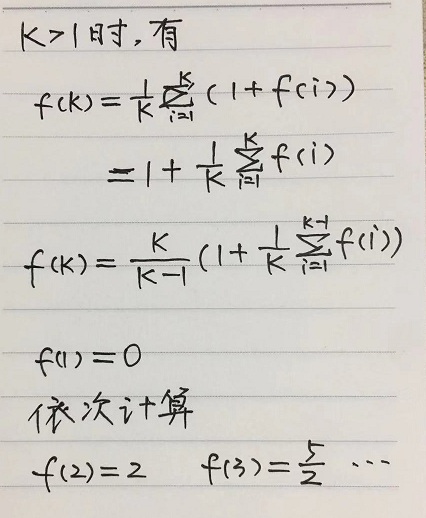 K>1时,有
f(K)=\frac{1}{K}\sum_{i=1}^{K}(1+f(i))
=1+\frac{1}{K}\sum_{i=1}^{K}f(i)
f(K)=\frac{K}{K-1}(1+\frac{1}{K}\sum_{i=1}^{K-1}f(i))
f(1)=0
依次计算
f(2)=2 f(3)=\frac{5}{2} ...